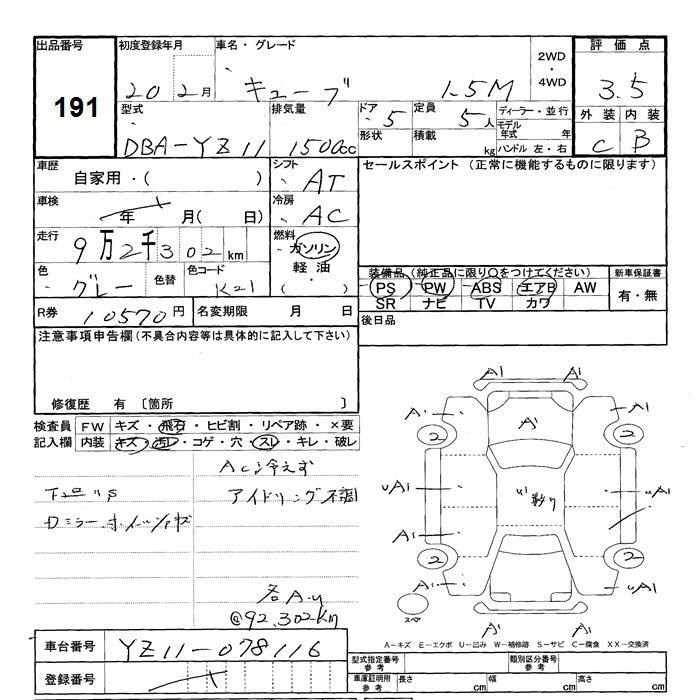 出品番号 初度登録年月 車名・グレード 2WD・4WD 評価点
191 20 2月 キューブ 1.5M 3.5
型式 排気量 ドア・5 定員 5人 ディーラー・並行 外装 内装
DBA-YZ11 1500cc 形状 積載 kg モデル年式 年 ハンドル 左・右 C B
車歴 自家用・( ) シフト AT セールスポイント (正常に機能するものに限ります)
車検 年 月( 日) 冷房 AC
走行 9万2千302km 燃料 ガソリン・軽油・( )
色 グレー 色替 色コード K21
装備品 (純正品に限り○をつけてください) 新車保証書
PS PW ABS エアB AW 有・無
SR ナビ TV カワ
R券 10570円 名変期限 月 日 後日品
注意事項申告欄 (不具合内容等は具体的に記入して下さい)
修復歴 有 〔箇所 〕
検査員 FW キズ・飛石・ヒビ割・リペア跡・×要
記入欄 内装 キズ・汚レ・コゲ・穴・スレ・キレ・破レ
AC冷えず
アイドリング不調
各A.U
@92,302km
A1 A1
A A A1
2 2
UA1 A1 UA1
A1 A1
2 2
A1 UA1
スペア A1 A1
A-キズ E-エクボ U-凹み W-補修跡 S-サビ C-腐食 XX-交換済
車台番号 YZ11-078116
登録番号
型式指定番号 参考 類別区分番号 参考
車庫証明用 参考 長さ cm 幅 cm 高さ cm